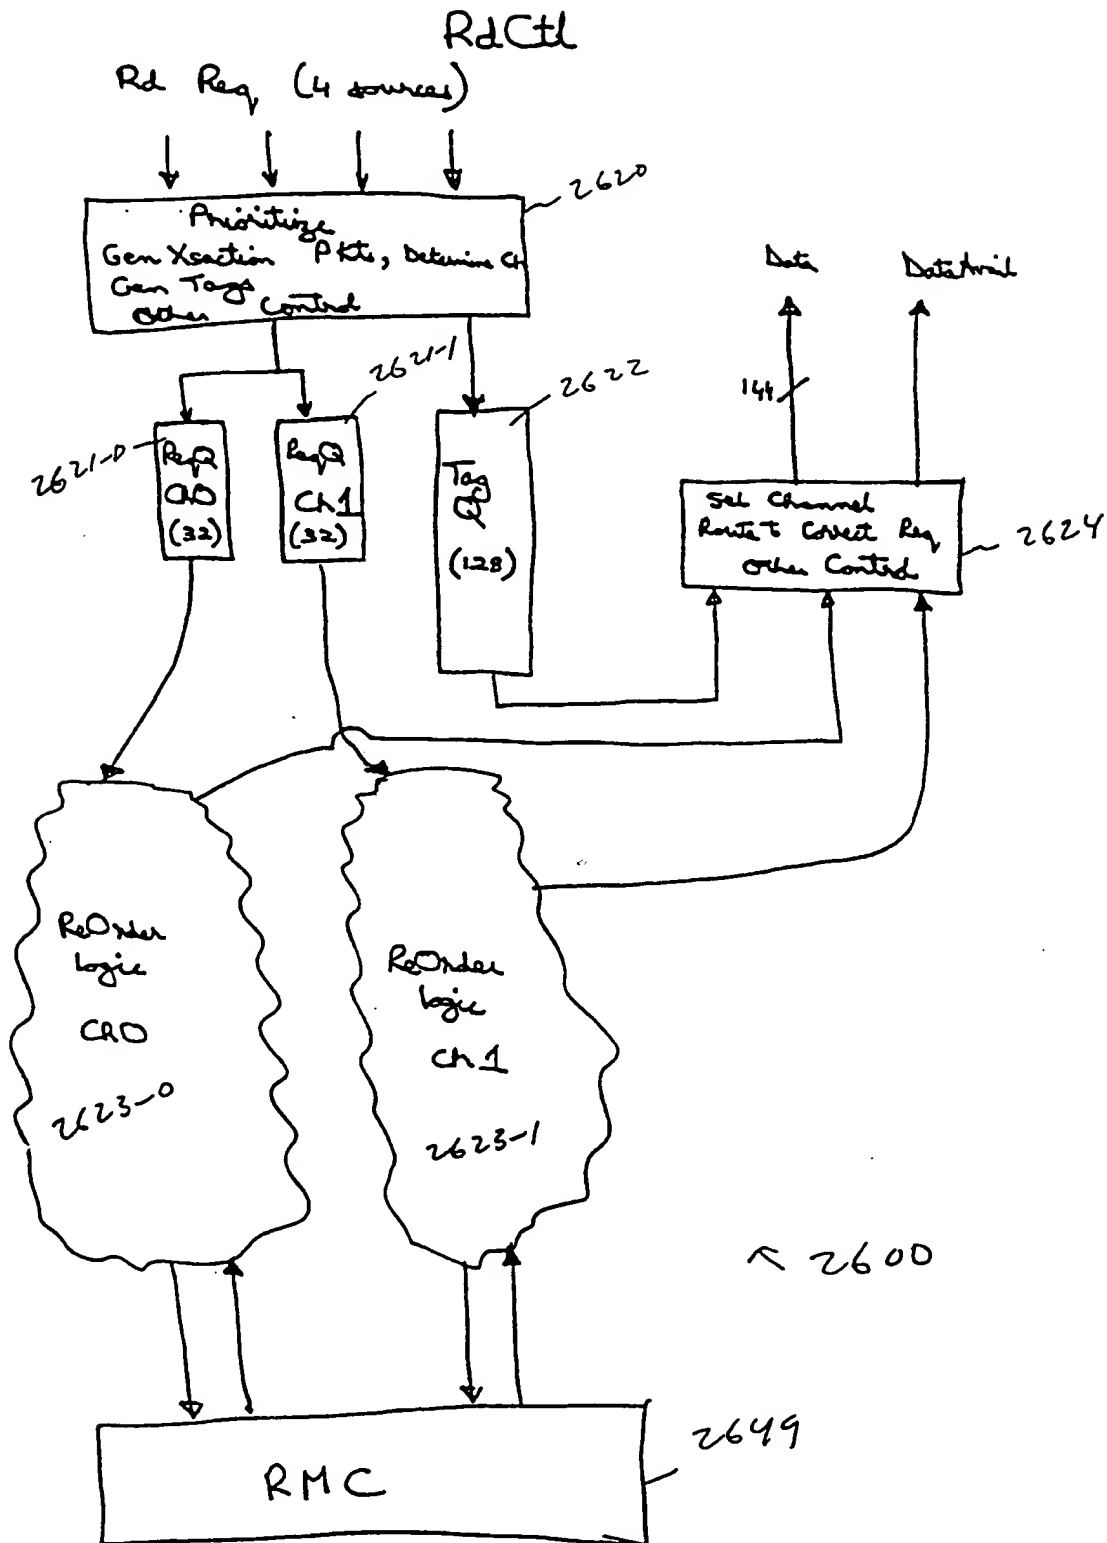 RdCtl
Rd Req (4 sources)
2620
Prioritize
Gen Xsaction Pkts, Determine Ch
Gen Tags
Other Control
Data
DataAvail
2621-1
2622
144
2621-0
ReqQ
Ch0
(32)
ReqQ
Ch1
(32)
Tag
Q
(128)
Sel Channel
Route to Correct Req
Other Control
2624
ReOrder
Logic
Ch0
2623-0
ReOrder
Logic
Ch1
2623-1
2600
2649
RMC